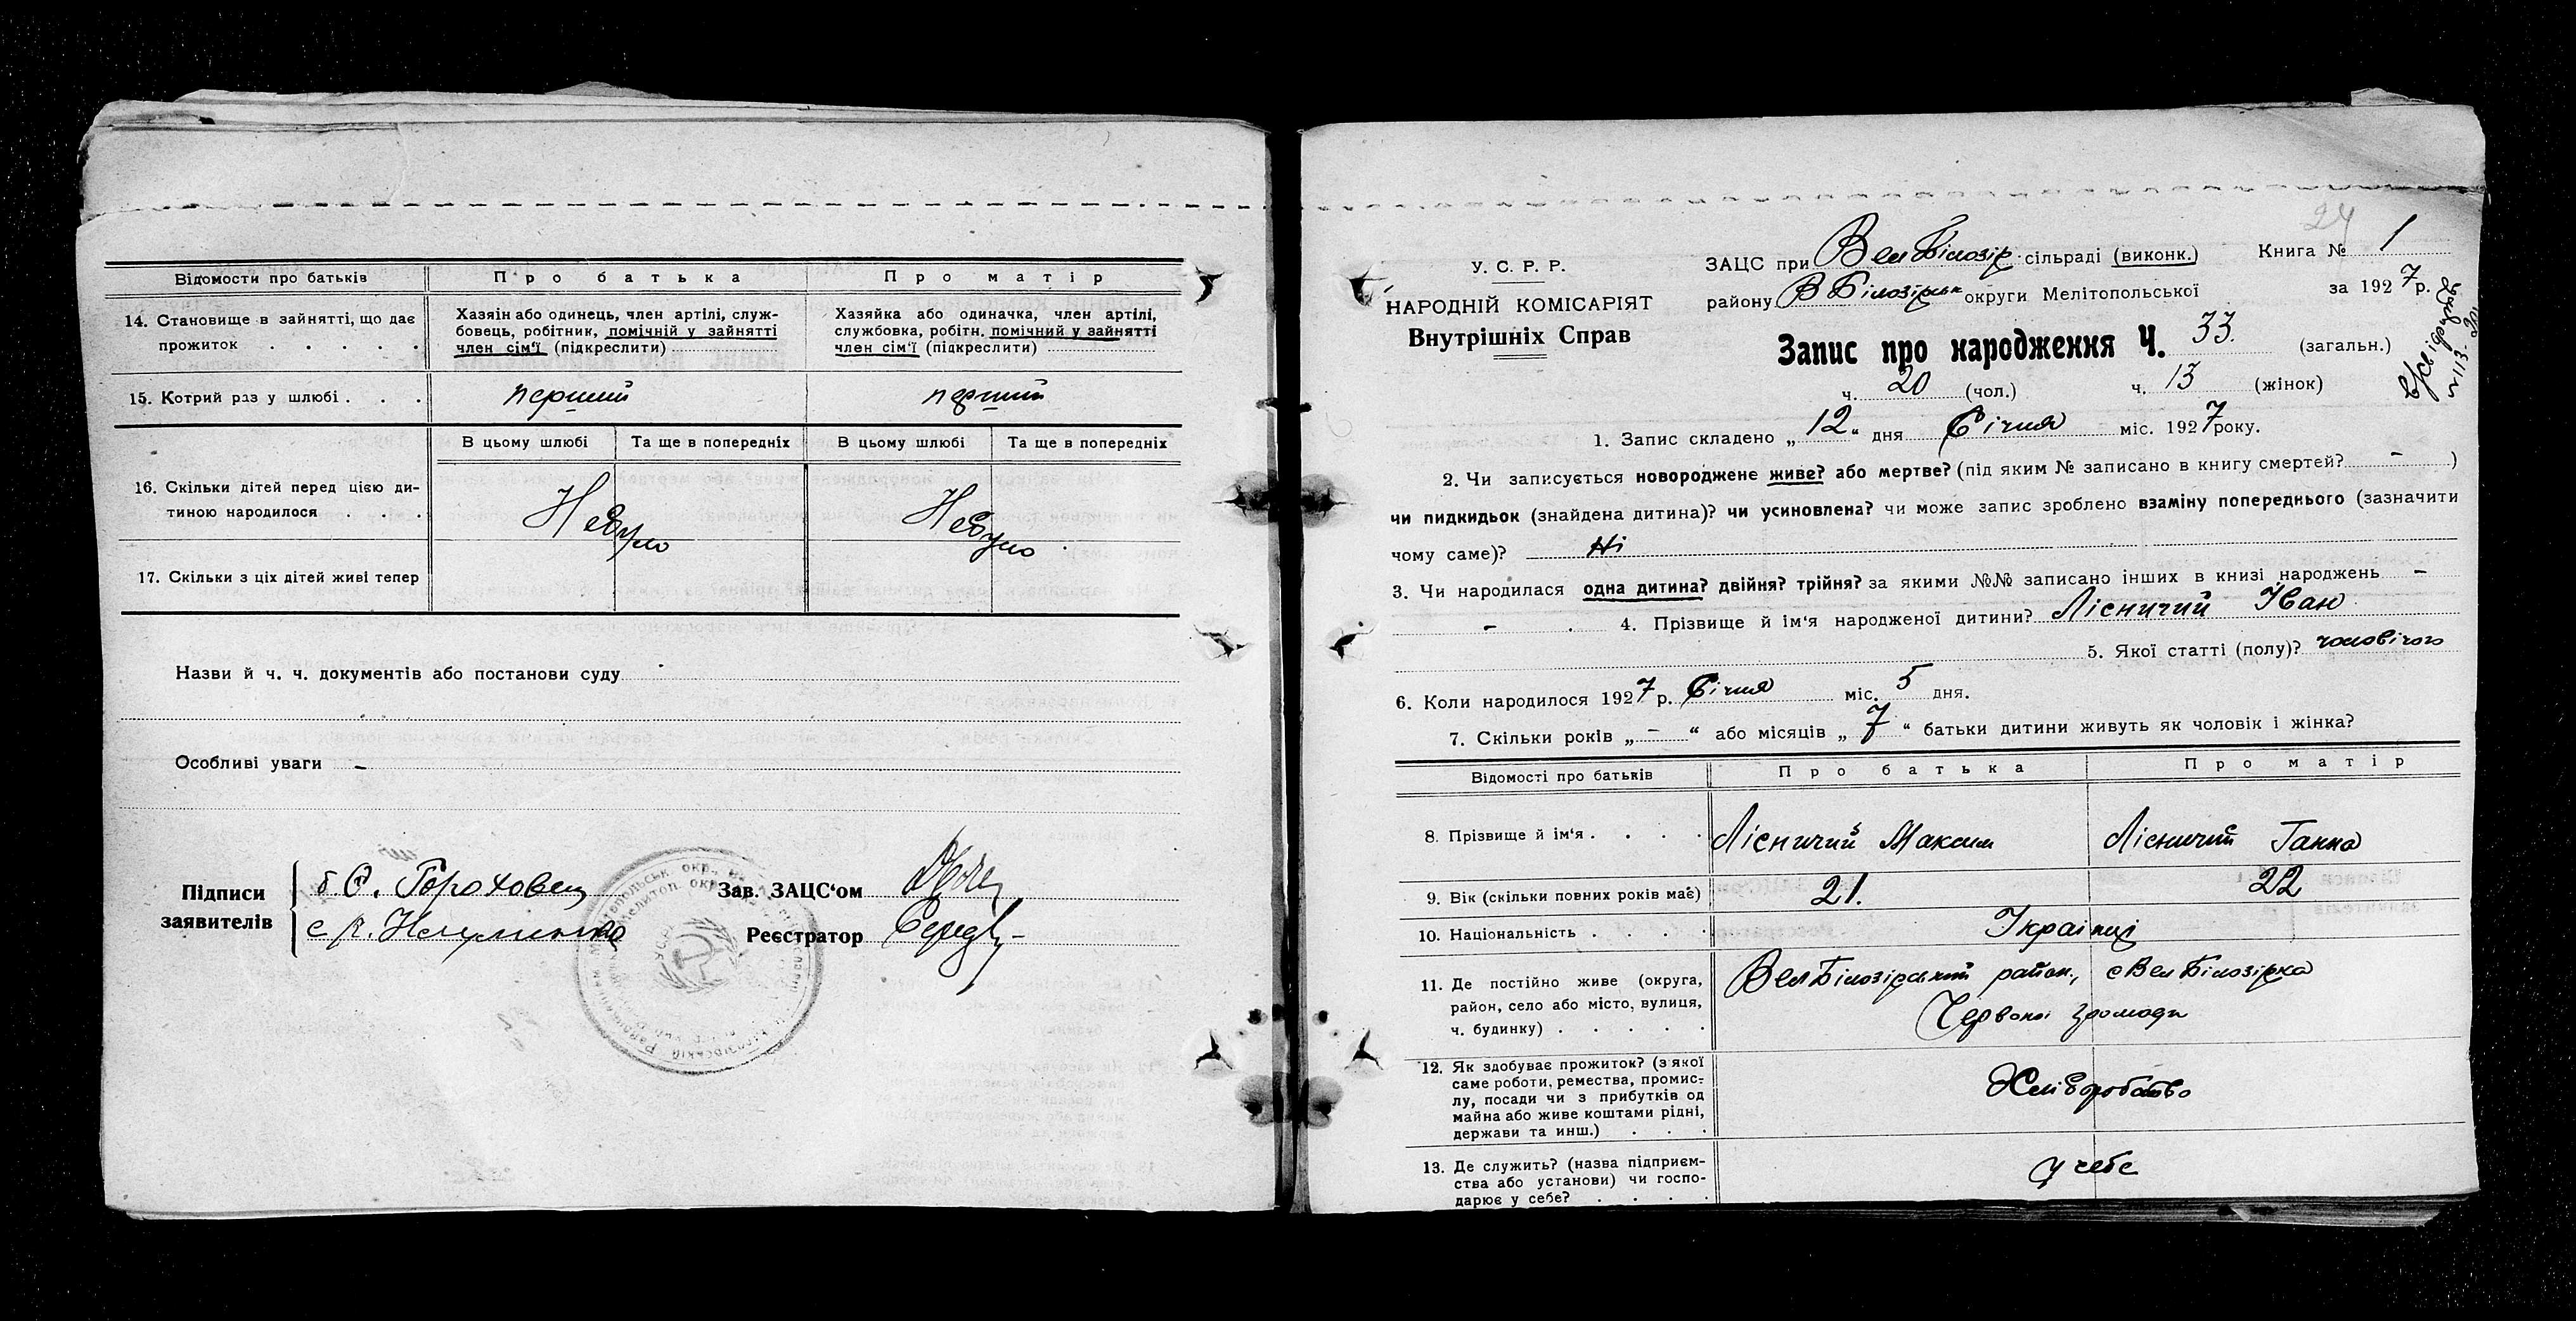 Відомости про батьків
Про батька
Про матір
14. Становище в зайнятті, що дає прожиток . . . . .
Хазяін або одинець, член артілі, служ-
бовець, робітник, помічній у зайнятті
член сім'ї (підкреслити)
Хазяйка або одиначка, член артілі,
службовка, робітн. помічний у зайнятті
член сім'ї (підкреслити)
15. Котрий раз у шлюбі . . .
перший
перший
В цьому шлюбі
Та ще в попередніх
В цьому шлюбі
Та ще в попередніх
16. Скільки дітей перед цією ди-
тиною народилося . . .
Небуло
Небуло
17. Скільки з ціх дітей живі тепер
Назви й ч. ч. документів або постанови суду
Особливі уваги –
Підписи
заявителів
Зав. ЗАЦС'ом
Реєстратор
24
У. С. Р. Р.
НАРОДНІЙ КОМІСАРІЯТ
Внутрішніх Справ
ЗАЦС при Вел Білозір. сільраді (виконк.)
Книга № 1
району В Білозірськ округи Мелітопольської
за 1927р.
Запис про народження Ч. 33. (загальн.)
ч. 20 (чол.) ч. 13 (жінок)
1. Запис складено „12“ дня Січня міс. 1927року.
2. Чи записується новороджене живе? або мертве? (під яким № записано в книгу смертей? – )
чи пидкидьок (знайдена дитина)? чи усиновлена? чи може запис зроблено взаміну попереднього (зазначити
чому саме)? Ні
3. Чи народилася одна дитина? двійня? трійня? за якими №№ записано інших в книзі народжень –
– 4. Прізвище й ім'я народженої дитини? Лісничий Іван
5. Якої статті (полу)? чоловічого
6. Коли народилося 1927р. Січня міс. 5 дня.
7. Скільки років „–“ або місяців „7“ батьки дитини живуть як чоловік і жінка?
Відомості про батьків
Про батька
Про матір
8. Прізвище й ім'я . . . .
Лісничий Максим
Лісничий Ганна
9. Вік (скільки повних років має)
21.
22
10. Національність . . . .
Українці
11. Де постійно живе (округа,
район, село або місто, вулиця,
ч. будинку) . . . . .
ВелБілозірський район., с Вел Білозірка
Червоної громади
12. Як здобуває прожиток? (з якої
саме роботи, ремества, промис-
лу, посади чи з прибутків од
майна або живе коштами рідні,
держави та инш.) . . .
Хліборобство
13. Де служить? (назва підприєм-
ства або установи) чи госпо-
дарює у себе? . . . .
у себе